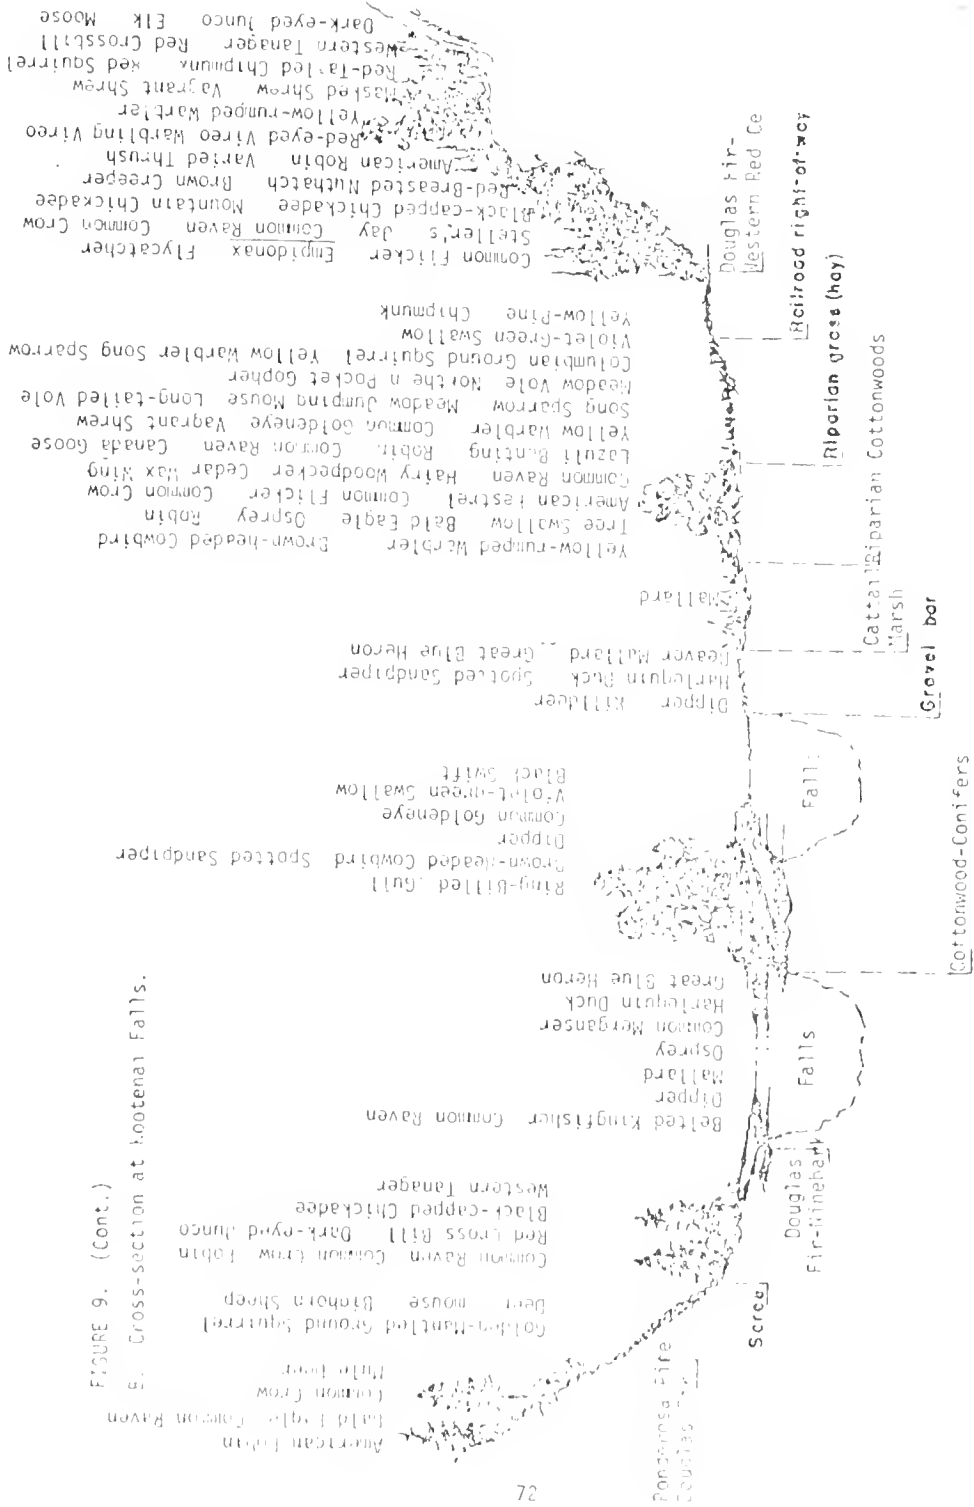 FIGURE 9. (Cont.)
B. Cross-section at Kootenai Falls.
American Robin
Bald Eagle Common Raven
Common Crow
Mule Deer
Golden-Mantled Ground Squirrel
Deer mouse Bighorn Sheep
Common Raven Common Crow Robin
Red Cross Bill Dark-eyed Junco
Black-capped Chickadee
Western Tanager
Belted Kingfisher Common Raven
Dipper
Mallard
Osprey
Common Merganser
Harlequin Duck
Great Blue Heron
Ring-Billed Gull
Brown-Headed Cowbird Spotted Sandpiper
Dipper
Common Goldeneye
Violet-green Swallow
Black Swift
Dipper Killdeer
Harlequin Duck Spotted Sandpiper
Beaver Mallard Great Blue Heron
Mallard
Yellow-rumped Warbler Brown-headed Cowbird
Tree Swallow Bald Eagle Osprey Robin
American Kestrel Common Flicker Common Crow
Common Raven Hairy Woodpecker Cedar Wax Wing
Lazuli Bunting Robin Common Raven Canada Goose
Yellow Warbler Common Goldeneye Vagrant Shrew
Song Sparrow Meadow Jumping Mouse Long-tailed Vole
Meadow Vole Northe n Pocket Gopher
Columbian Ground Squirrel Yellow Warbler Song Sparrow
Violet-Green Swallow
Yellow-Pine Chipmunk
Common Flicker Empidonax Flycatcher
Steller's Jay Common Raven Common Crow
Black-capped Chickadee Mountain Chickadee
Red-Breasted Nuthatch Brown Creeper
American Robin Varied Thrush
Red-eyed Vireo Warbling Vireo
Yellow-rumped Warbler
Masked Shrew Vagrant Shrew
Red-Tailed Chipmunk Red Squirrel
Western Tanager Red Crossbill
Dark-eyed Junco Elk Moose
Ponderosa Pine
Douglas
Scree
Douglas
Fir-Ninebark
Falls
Cottonwood-Conifers
Falls
Gravel bar
Cattail
Marsh
Riparian Cottonwoods
Riparian grass (hay)
Railroad right-of-way
Douglas Fir-
Western Red Ce
72